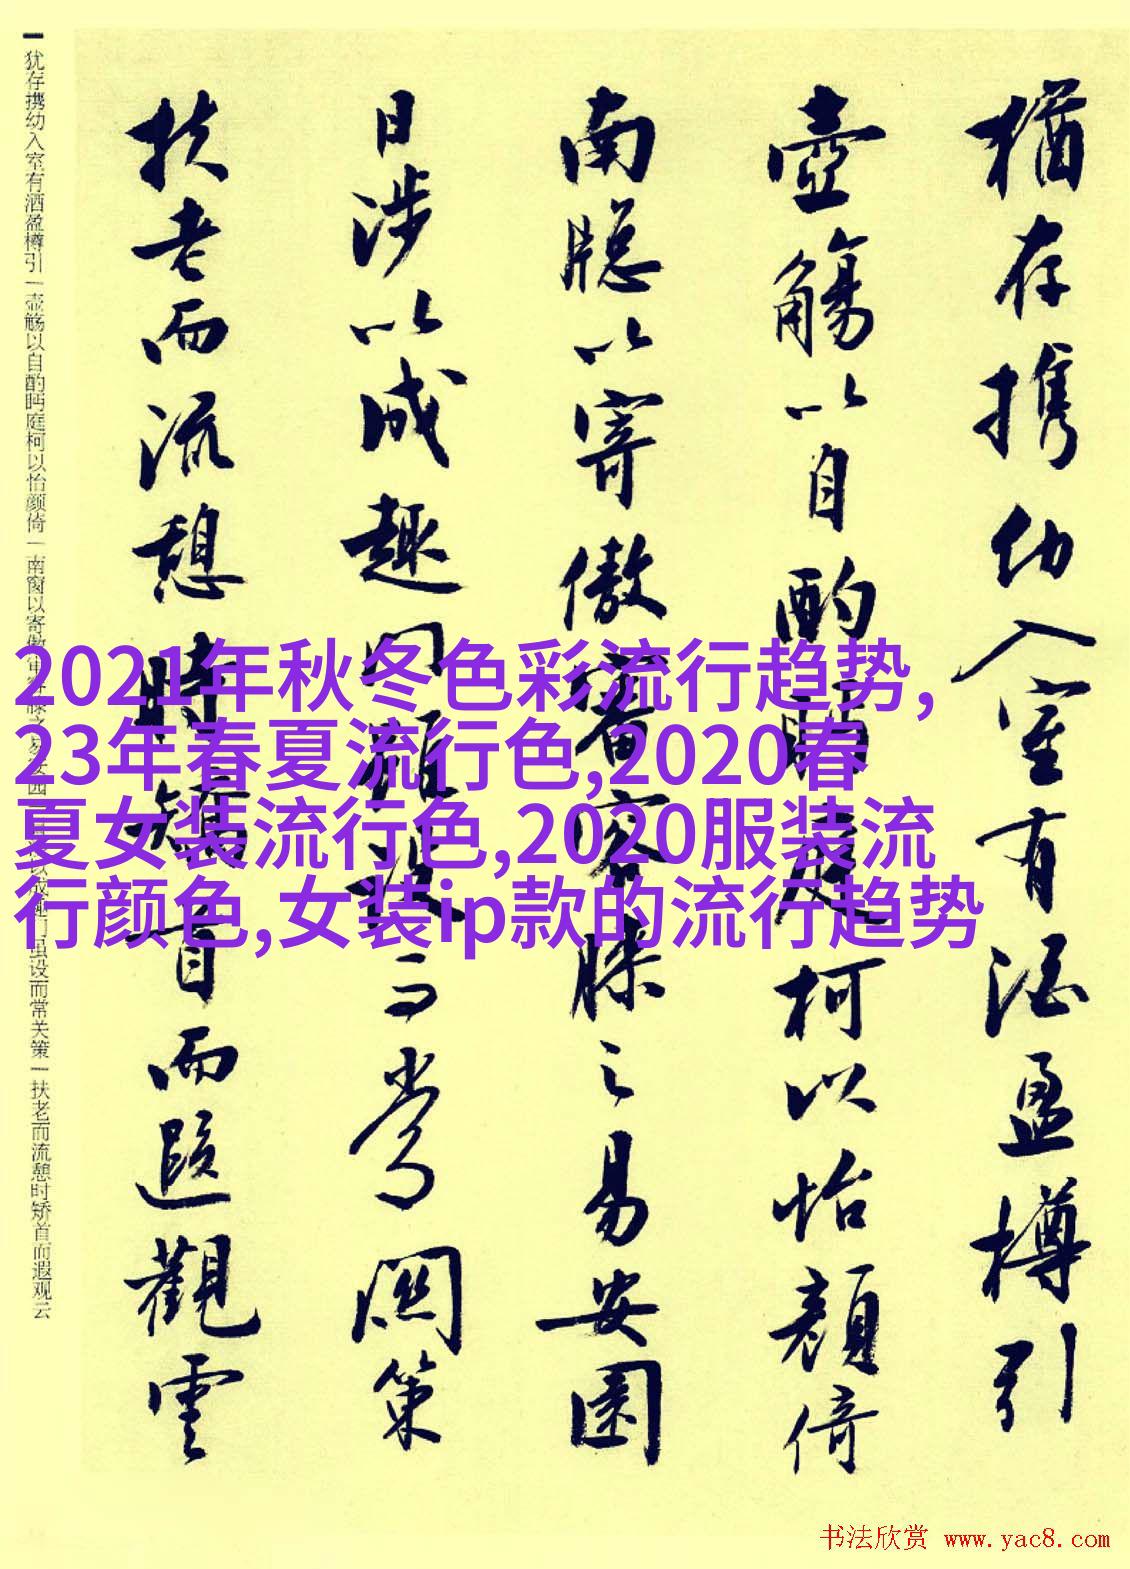 猶存携幼入室有酒盈樽引
壺觴以自酌眄庭柯以怡顔倚
南牕以寄傲審容膝之易安園
日涉以成趣门雖设而常関策
扶老而流憩時矯首而遐觀雲
犹存携幼入室有洒盈樽引|壶觞以自酌眄庭柯以怡颜倚|南窗以寄傲审容膝之易安园|日涉以成趣门虽设而常关策|扶老而流憩时矫首而遐观云
2021年秋冬色彩流行趋势,
23年春夏流行色,2020春
夏女装流行色,2020服装流
行颜色,女装ip款的流行趋势
书法欣赏 www.yac8.com